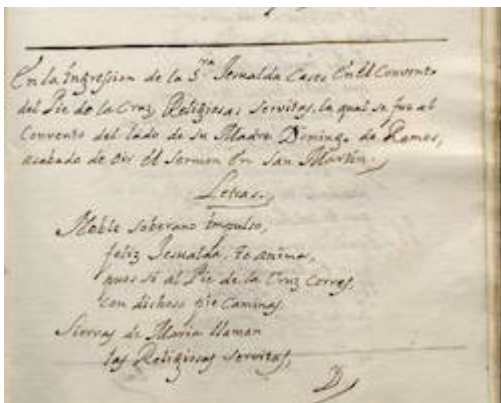 En la Ingression de la S.ra Jesualda Cases En el Convento
del Pie de la Cruz, Religiosas Servitas, la qual se fue al
Convento del lado de su Madre Doming. de Ramos,
acabado de oir el Sermon en San Martin.
Letras.
Noble Soberano impulso,
feliz Jesualda, te anima,
pues si al Pie de la Cruz Corres,
con dichoso pie Caminas.
Siervas de Maria llaman
las Religiosas Servitas,